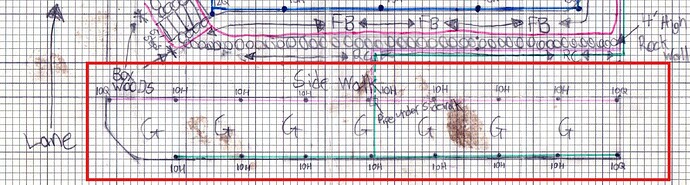 FB FB FB
4' High
Rock
Wall
RC RC
Box
Woods
Side Walk
10Q 10H 10H 10H 10H 10H 10H 10H 10Q
Pipe under Sidewalk
Lane
G G G G G G G
10H 10H 10H 10H 10H 10H 10Q